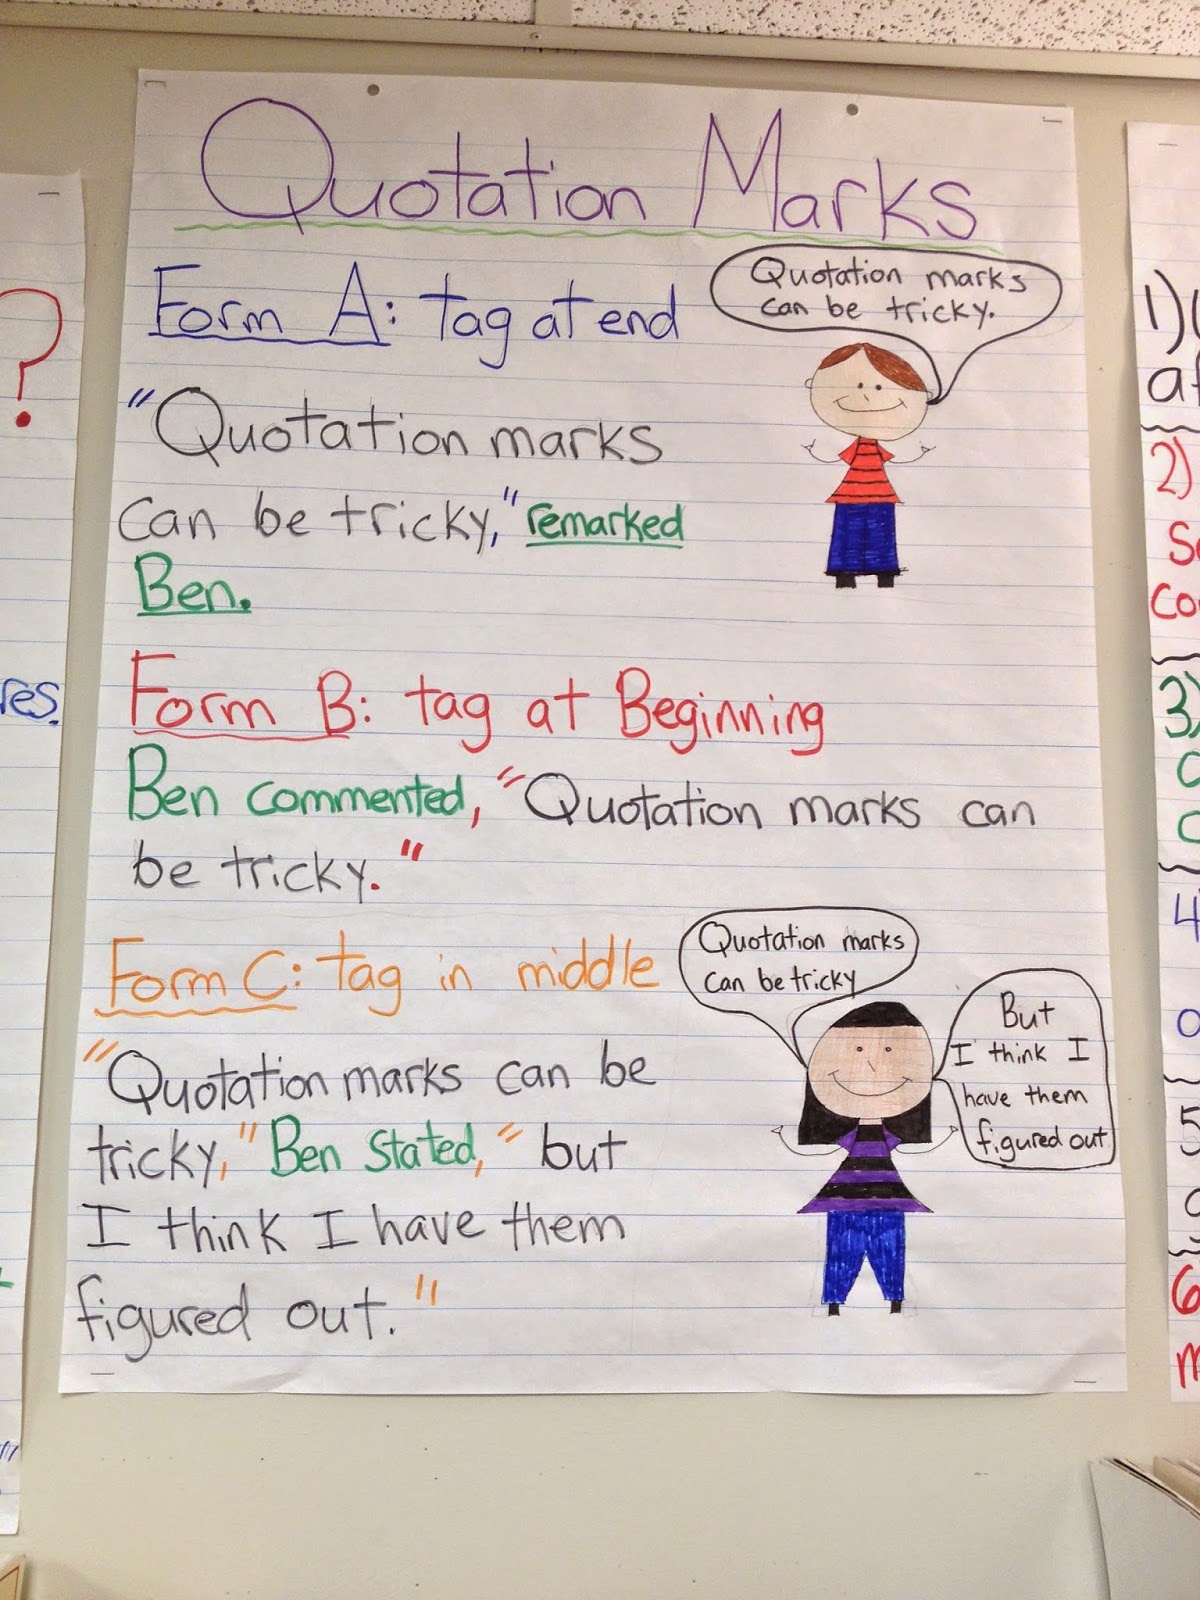 Quotation Marks
Form A: tag at end
Quotation marks
can be tricky.
"Quotation marks
can be tricky," remarked
Ben.
Form B: tag at Beginning
Ben commented, "Quotation marks can
be tricky."
Form C: tag in middle
Quotation marks
can be tricky
But
I think I
have them
figured out
"Quotation marks can be
tricky," Ben stated, "but
I think I have them
figured out."
?
res.
1)
2)
3)
4
5
6